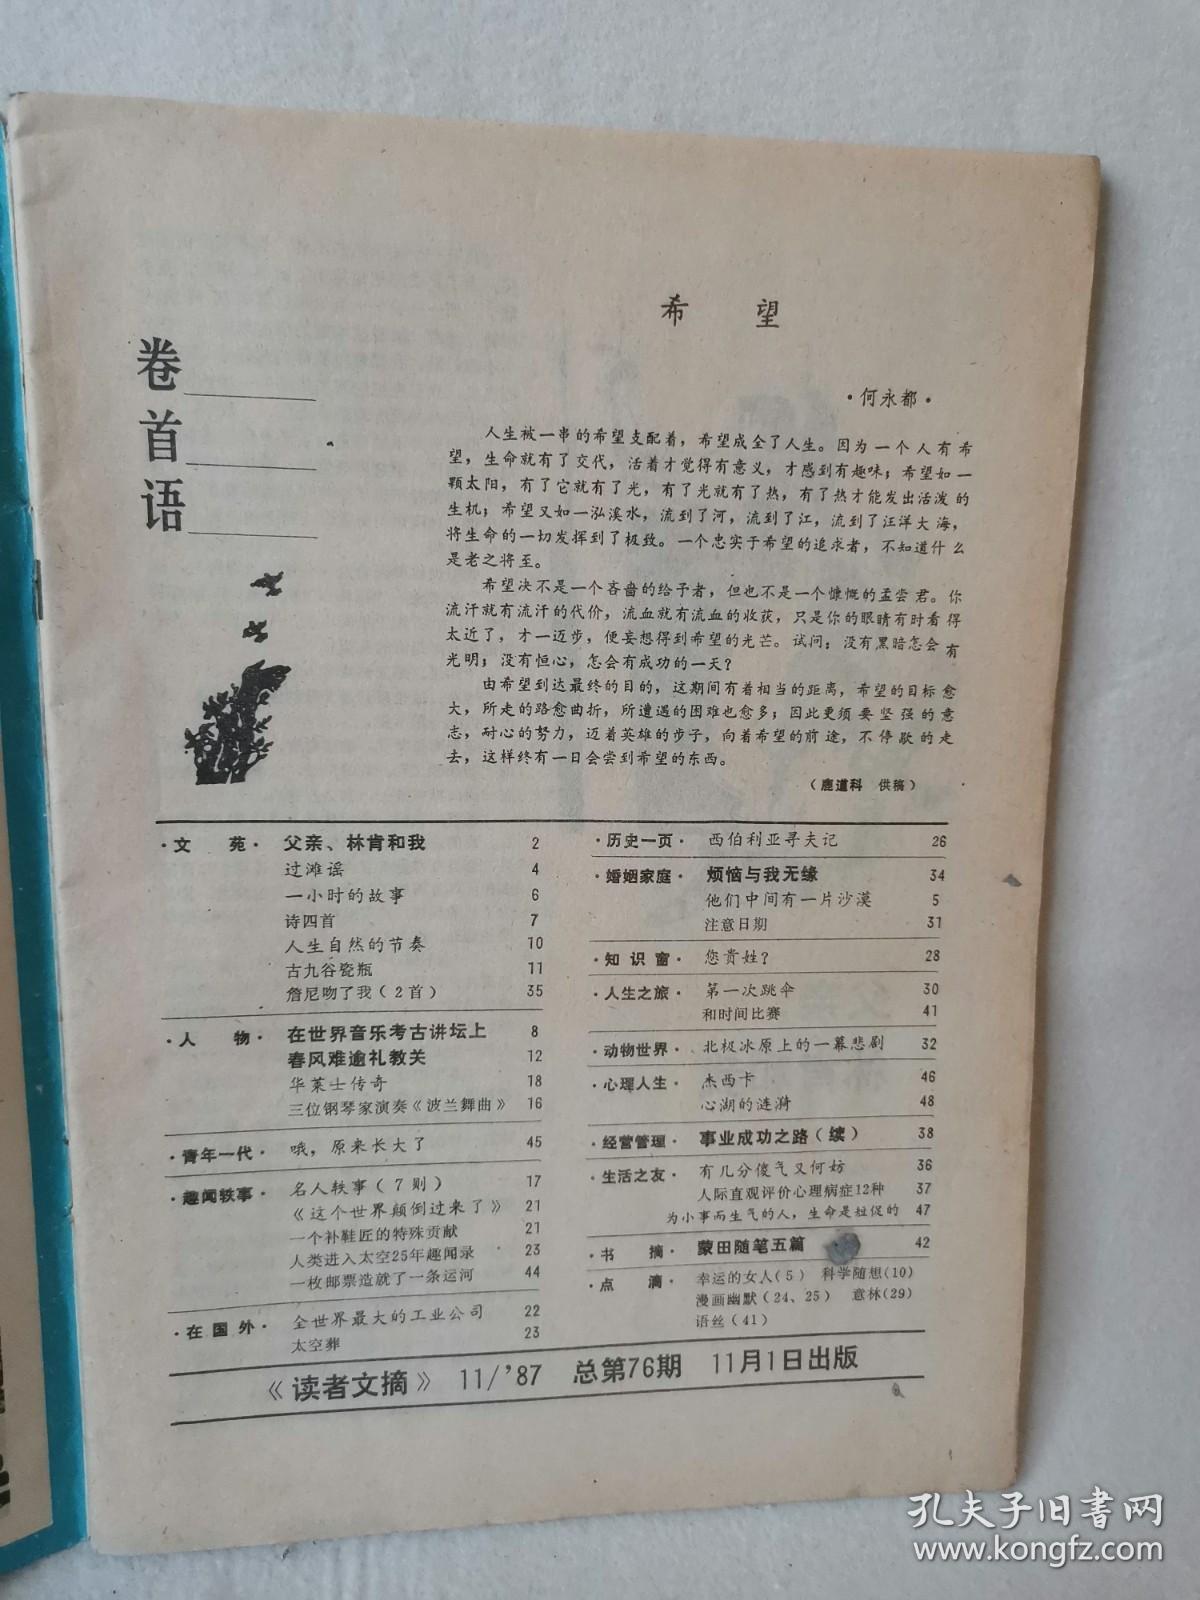 卷首语
希望
·何永都·
人生被一串的希望支配着，希望成全了人生。因为一个人有希
望，生命就有了交代，活着才觉得有意义，才感到有趣味；希望如一
颗太阳，有了它就有了光，有了光就有了热，有了热才能发出活泼的
生机；希望又如一泓溪水，流到了河，流到了江，流到了汪洋大海，
将生命的一切发挥到了极致。一个忠实于希望的追求者，不知道什么
是老之将至。
希望决不是一个吝啬的给予者，但也不是一个慷慨的孟尝君。你
流汗就有流汗的代价，流血就有流血的收获，只是你的眼睛有时看得
太近了，才一迈步，便妄想得到希望的光芒。试问；没有黑暗怎会有
光明；没有恒心，怎会有成功的一天？
由希望到达最终的目的，这期间有着相当的距离，希望的目标愈
大，所走的路愈曲折，所遭遇的困难也愈多；因此更须要坚强的意
志，耐心的努力，迈着英雄的步子，向着希望的前途，不停歇的走
去，这样终有一日会尝到希望的东西。
（鹿道科 供稿）
·文苑· 父亲、林肯和我 2
过滩谣 4
一小时的故事 6
诗四首 7
人生自然的节奏 10
古九谷瓷瓶 11
詹尼吻了我（2首） 35
·人物· 在世界音乐考古讲坛上 8
春风难逾礼教关 12
华莱士传奇 18
三位钢琴家演奏《波兰舞曲》 16
·青年一代· 哦，原来长大了 45
·趣闻轶事· 名人轶事（7则） 17
《这个世界颠倒过来了》 21
一个补鞋匠的特殊贡献 21
人类进入太空25年趣闻录 23
一枚邮票造就了一条运河 44
·在国外· 全世界最大的工业公司 22
太空葬 23
·历史一页· 西伯利亚寻夫记 26
·婚姻家庭· 烦恼与我无缘 34
他们中间有一片沙漠 5
注意日期 31
·知识窗· 您贵姓？ 28
·人生之旅· 第一次跳伞 30
和时间比赛 41
·动物世界· 北极冰原上的一幕悲剧 32
·心理人生· 杰西卡 46
心湖的涟漪 48
·经营管理· 事业成功之路（续） 38
·生活之友· 有几分傻气又何妨 36
人际直观评价心理病症12种 37
为小事而生气的人，生命是短促的 47
·书摘· 蒙田随笔五篇 42
·点滴· 幸运的女人(5) 科学随想(10)
漫画幽默(24、25) 意林(29)
语丝(41)
《读者文摘》 11/'87 总第76期 11月1日出版
孔夫子旧书网
www.kongfz.com